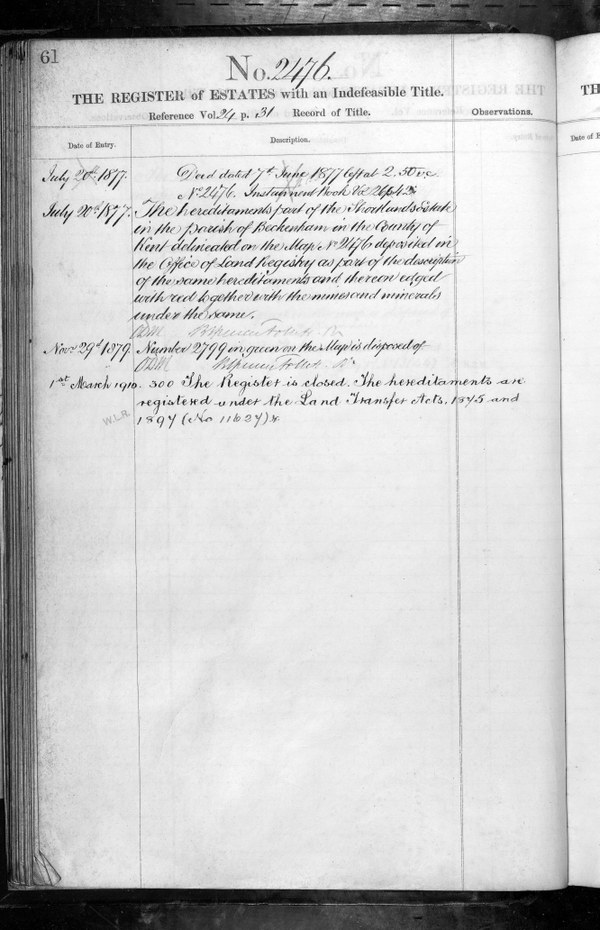 61
No. 2476.
THE REGISTER of ESTATES with an Indefeasible Title.
Reference Vol. 24 p. 31 Record of Title.
Observations.
Date of Entry.
Description.
July 20th 1877. Deed dated 7th June 1877 left at 2,50
No 2476. Instrument Book Vol 26 p 42
July 20th 1877. The hereditaments part of the Shortlands Estate
in the parish of Beckenham in the County of
Kent delineated on the Map No 2476 deposited in
the Office of Land Registry as part of the description
of the same hereditaments and thereon edged
with red together with the mines and minerals
under the same.
Novr 29th 1879. Number 2799 in green on the Map is disposed of
1st March 1910. 300 The Register is closed. The hereditaments are
registered under the Land Transfer Acts, 1875 and
1897 (No 11627)
W.L.R.
TH
Date of E